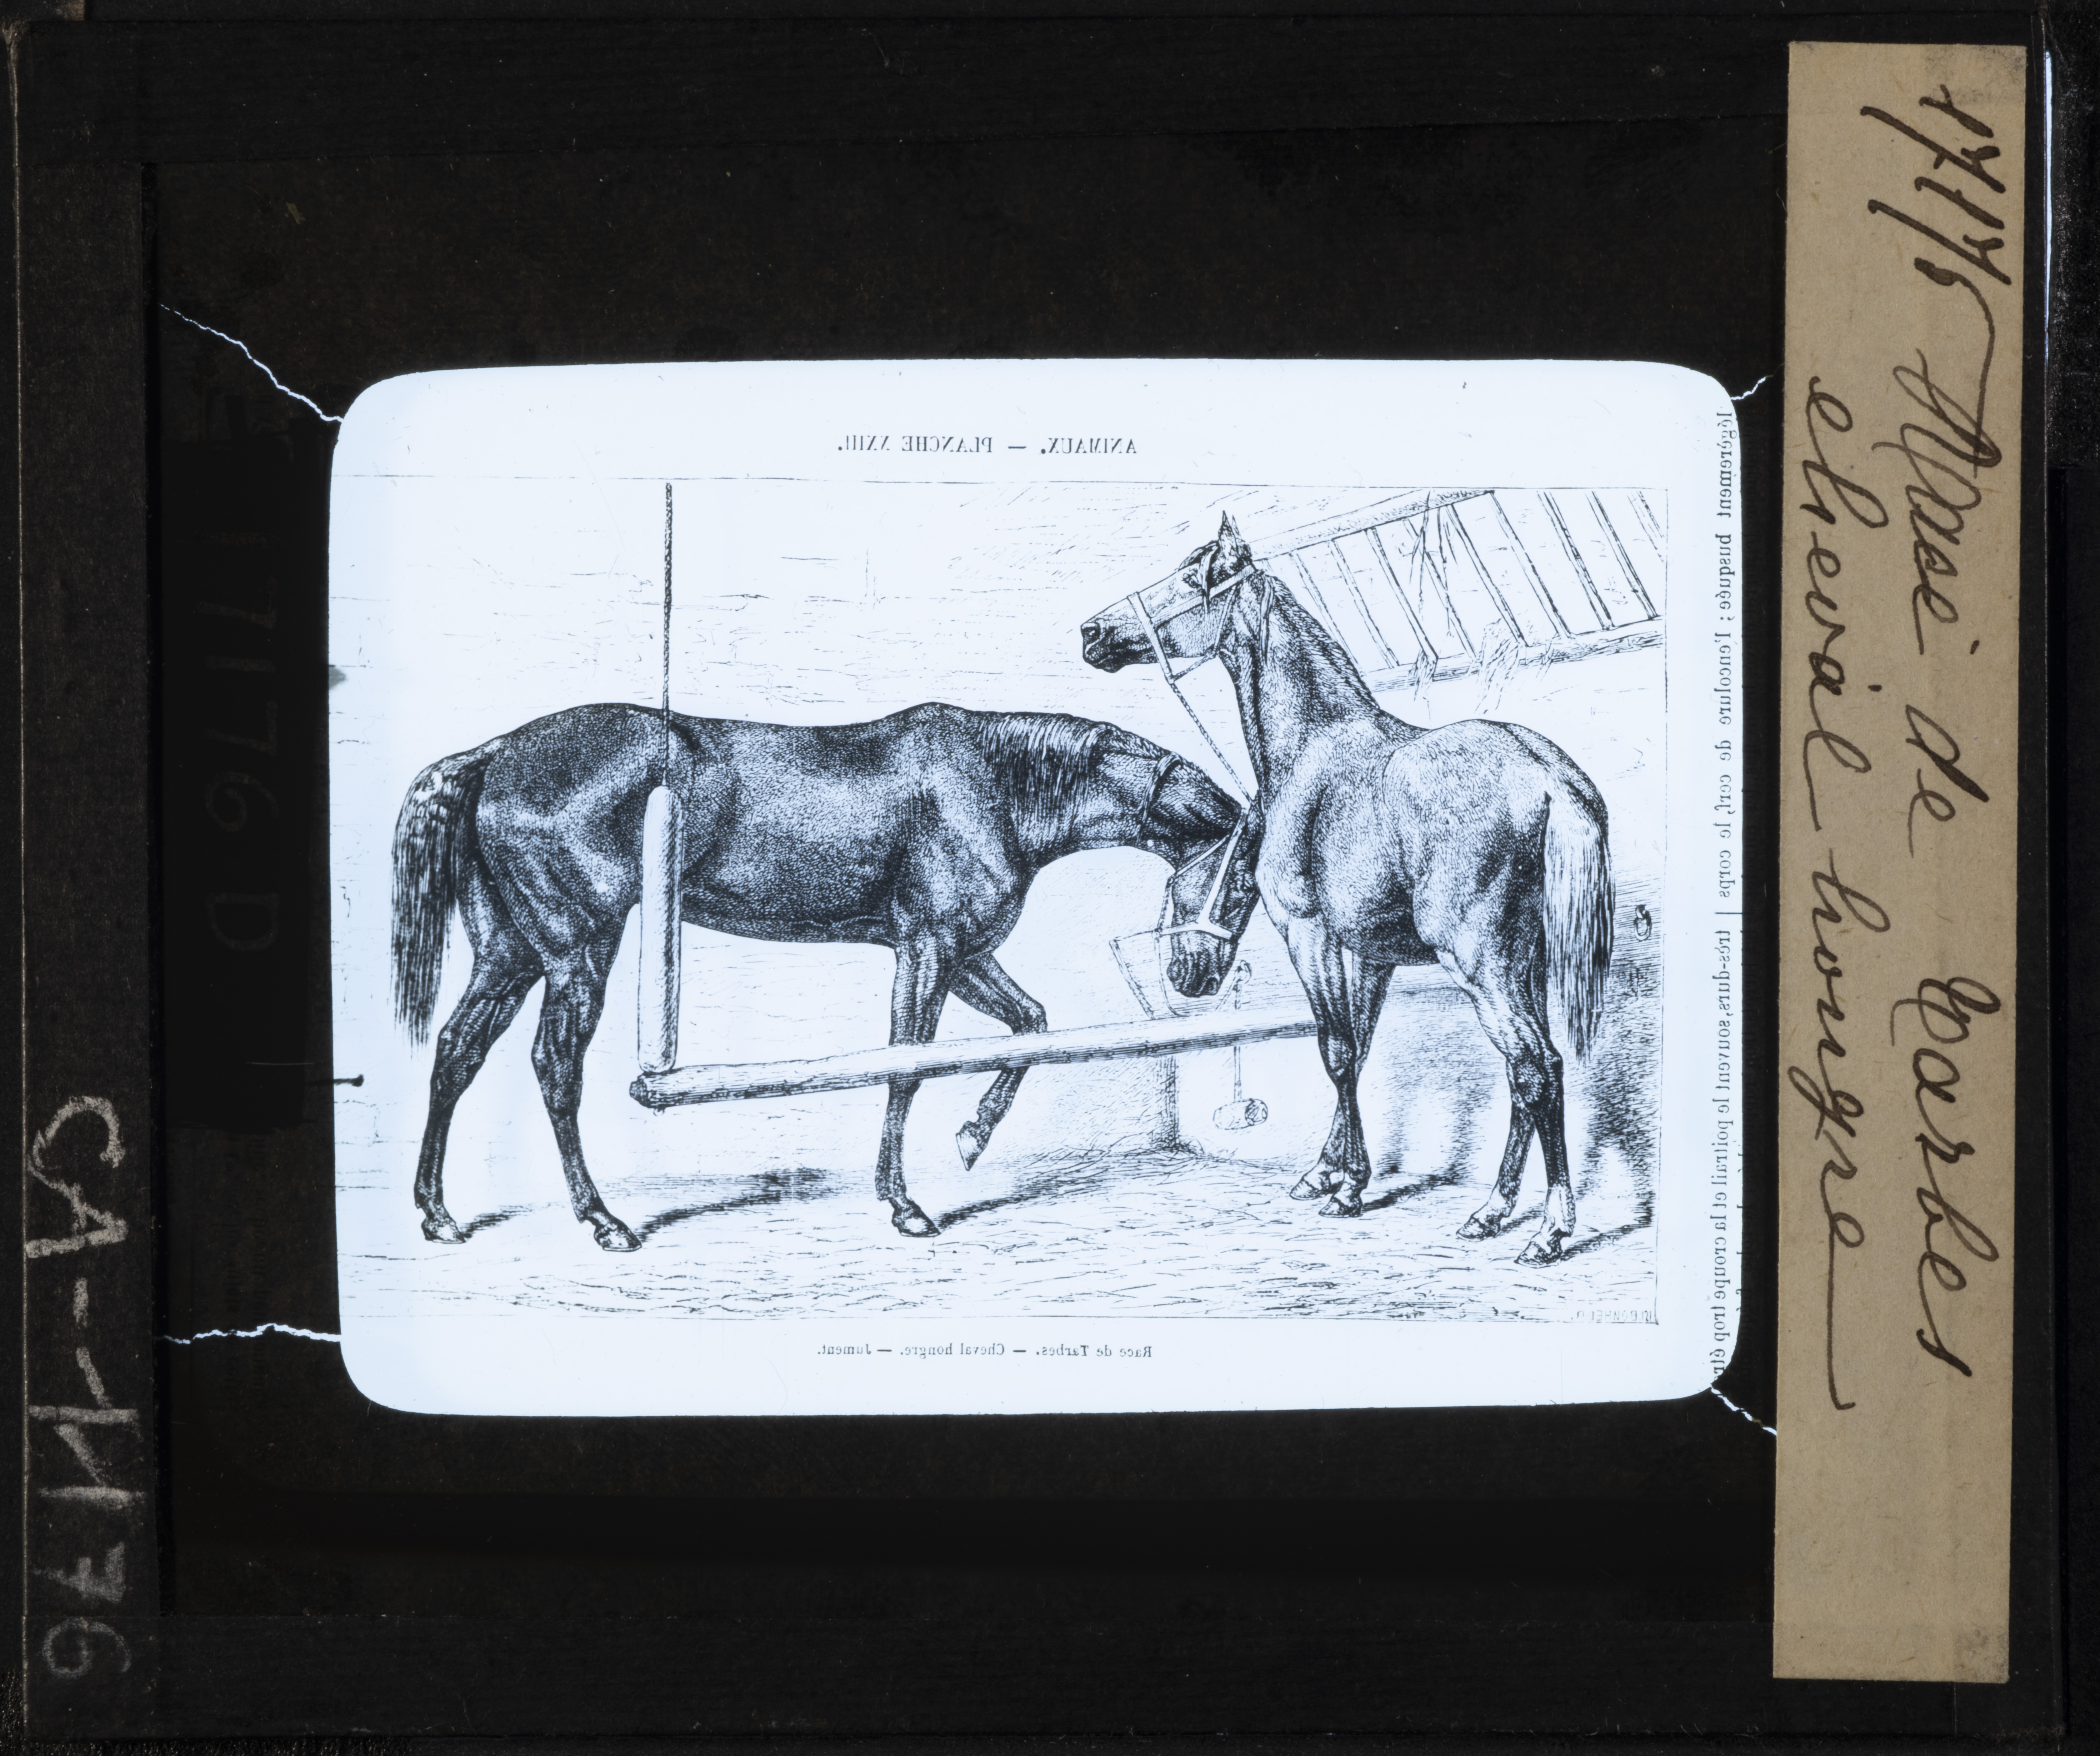 ANIMAUX. — PLANCHE XXIII.
Race de Tarbes. — Cheval hongre. — Jument.
légèrement busquée ; l'encolure de cerf, le corps
très-durs, souvent le poitrail et la croupe
1776 Race de Tarbes
cheval hongre
CA-1176
1176 D